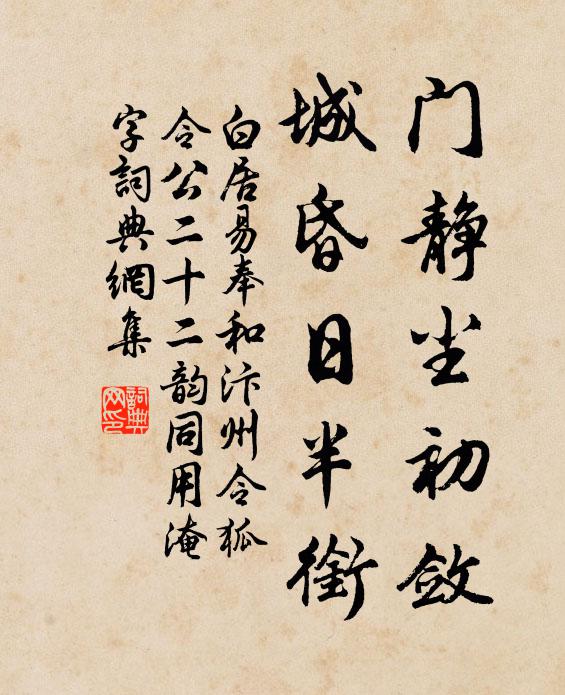 门静尘初敛
城昏日半銜
白居易奉和汴州令狐
令公二十二韵同用淹
字詞典網集
詞典
网印